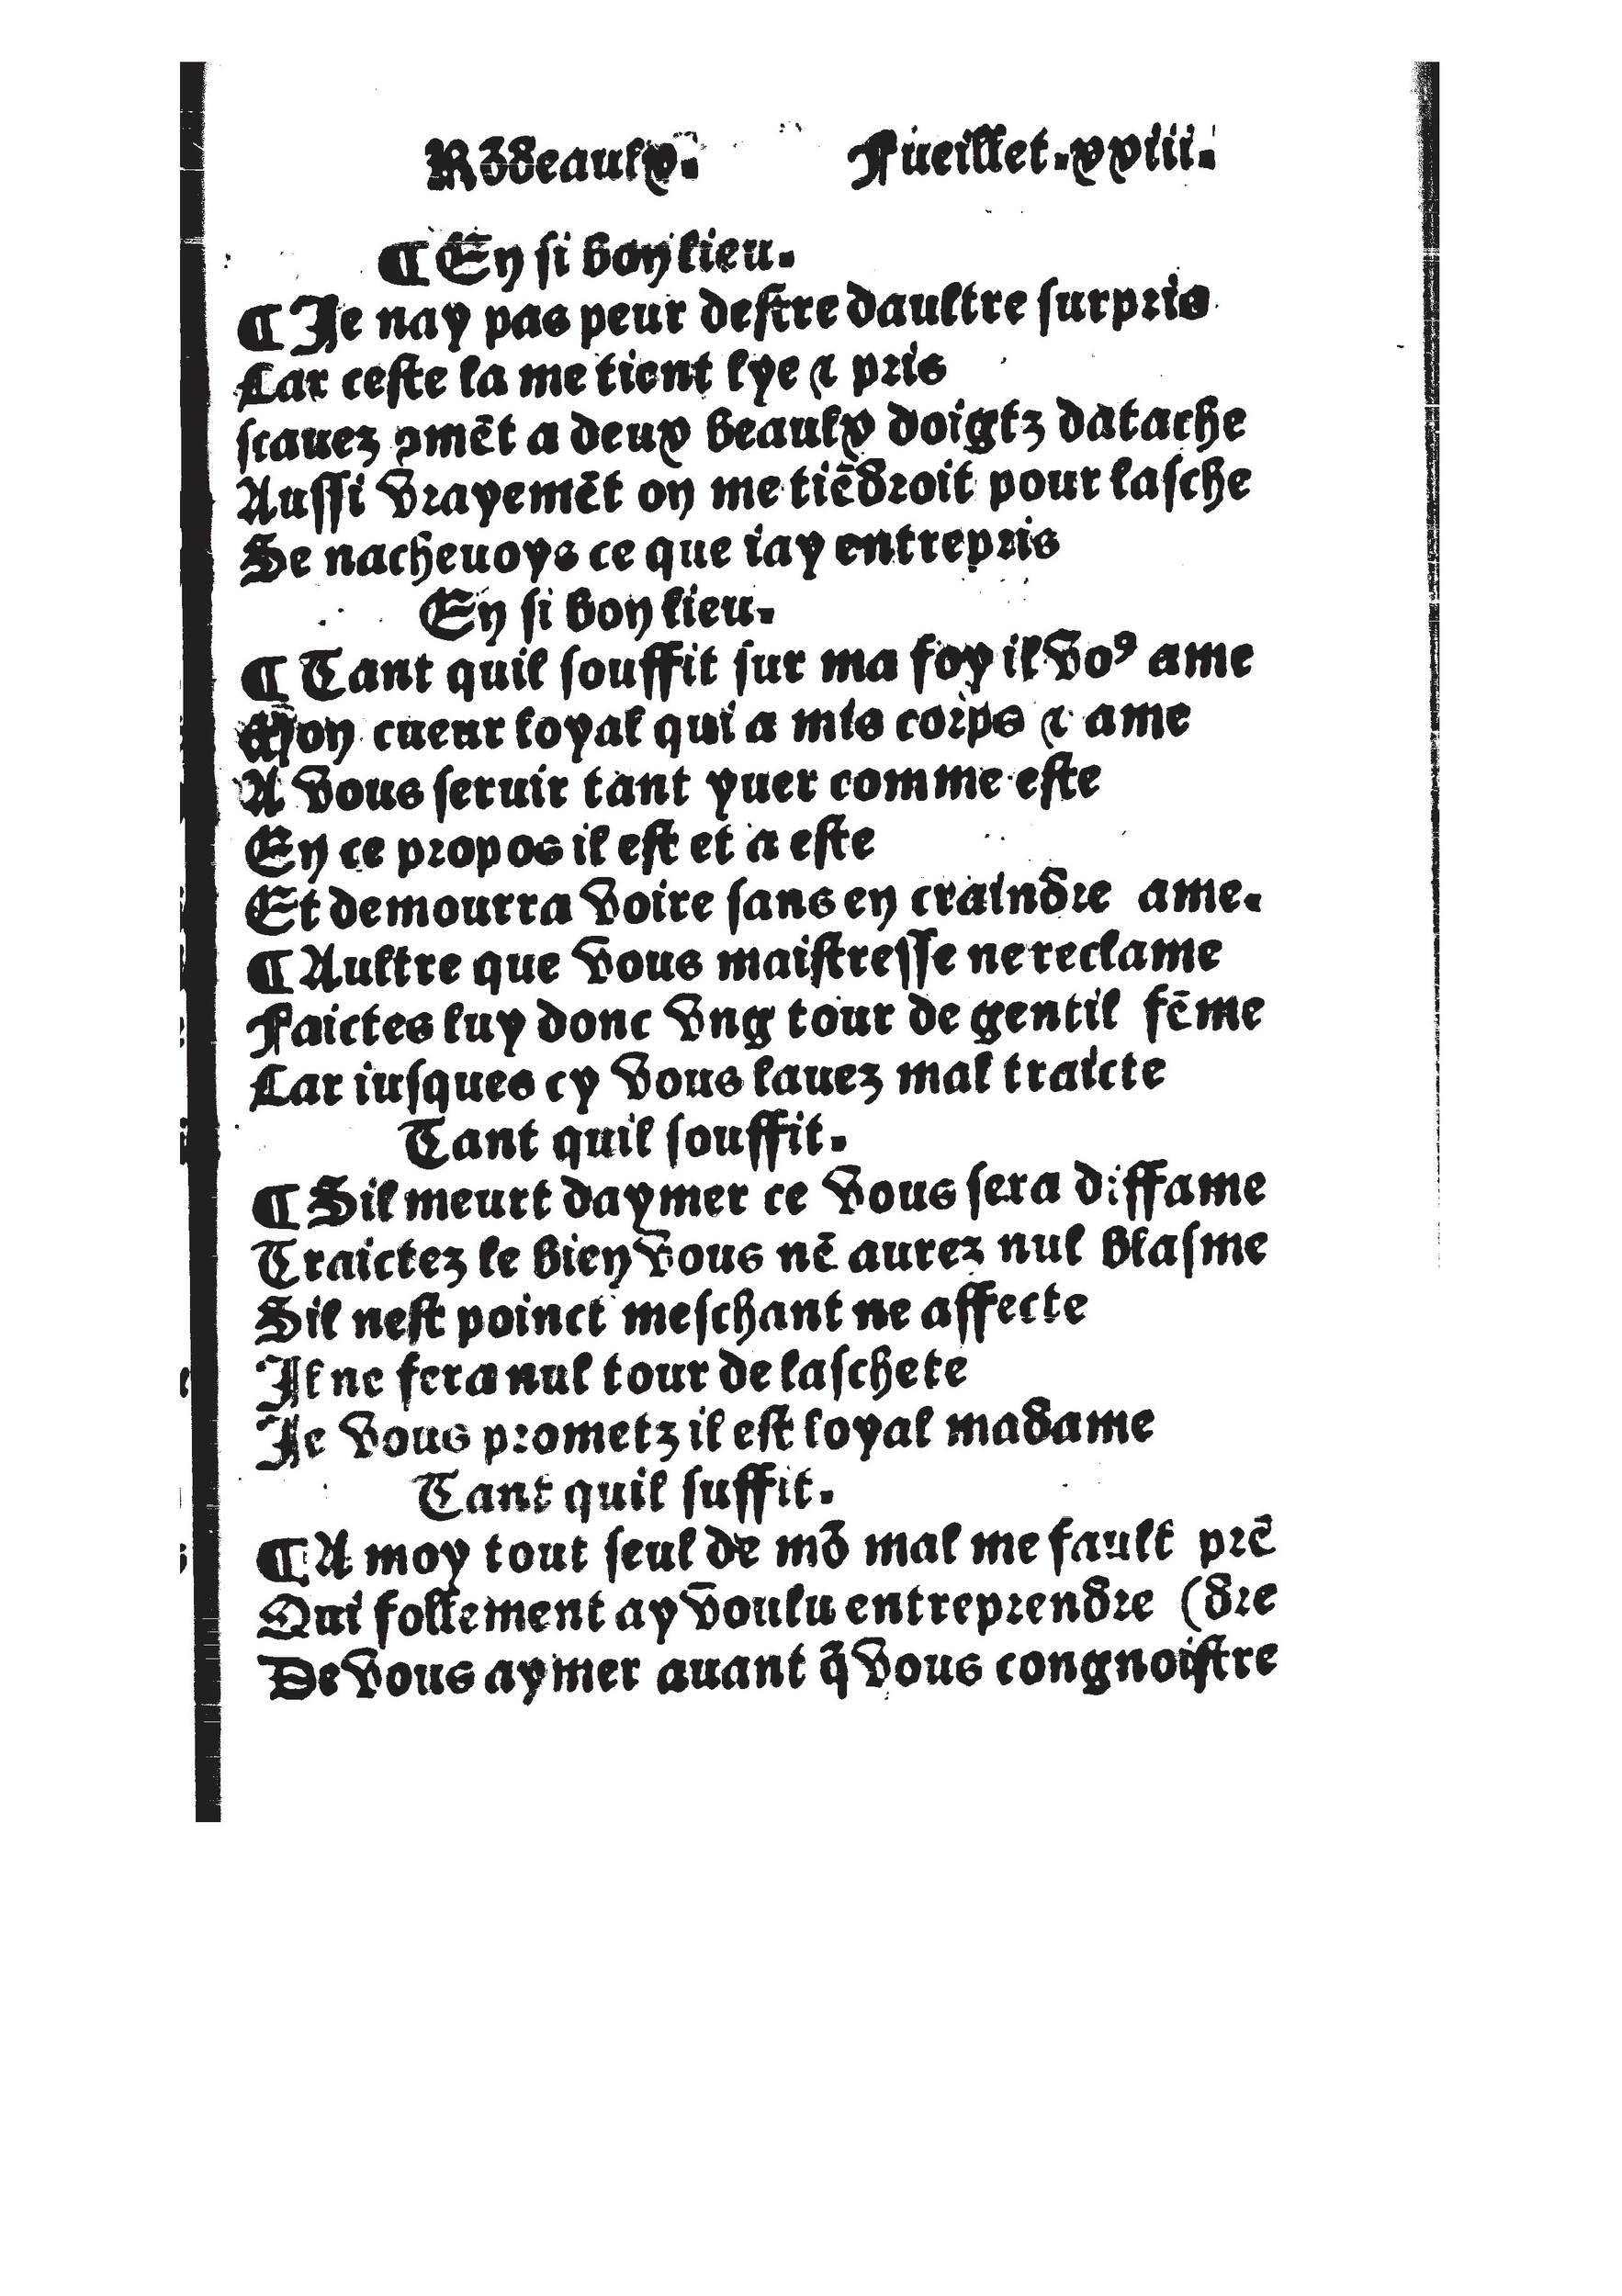 Rōdeaulx. Fueillet.xxiii.
¶ En si bon lieu.
¶ Je nay pas peur destre daultre surpris
Car ceste la me tient lye ⁊ pris
scauez ꝯmēt a deux beaulx doigtz datache
Aussi vrayemēt on me tiēdroit pour lasche
Se nacheuoys ce que iay entrepris
En si bon lieu.
¶ Tant quil souffit sur ma foy il voꝰ ame
Mon cueur loyal qui a mis corps ⁊ ame
A vous seruir tant yuer comme este
En ce propos il est et a este
Et demourra voire sans en craindre ame.
¶ Aultre que vous maistresse ne reclame
Faictes luy donc vng tour de gentil fēme
Car iusques cy vous lauez mal traicte
Tant quil souffit.
¶ Sil meurt daymer ce vous sera diffame
Traictez le bien vous nē aurez nul blasme
Sil nest poinct meschant ne affecte
Il ne fera nul tour de laschete
Je vous prometz il est loyal madame
Tant quil suffit.
¶ A moy tout seul de mō mal me fault prē
Qui follement ay voulu entreprendre (dre
De vous aymer auant q̄ vous congnoistre